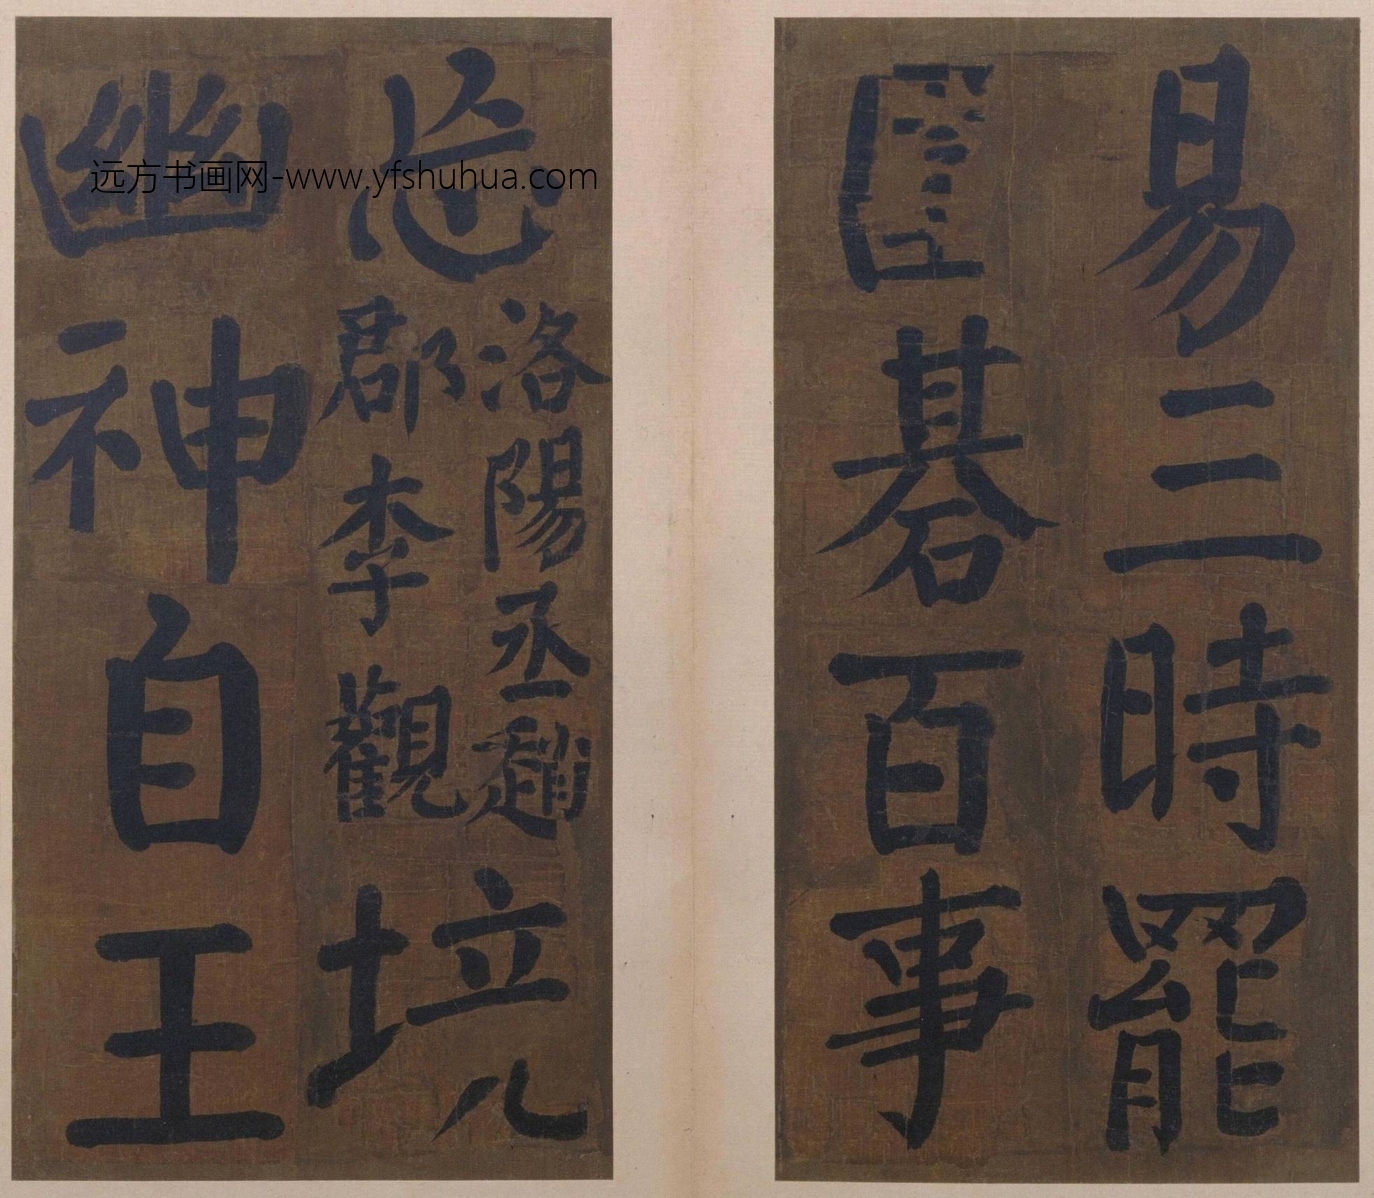 易三時罷
棊百事
洛陽丞趙
郡李觀
境
幽神自王
远方书画网-www.yfshuhua.com